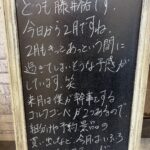 どうも藤村です。
今日から2月ですね。
2月もきっとあっという間に
過ぎてしまいそうな予感が
しています。笑
来月は僕が幹事をする
ゴルフコンペが2つあるので
組分けや予約、景品の
買い出しなど、今月はいろいろ